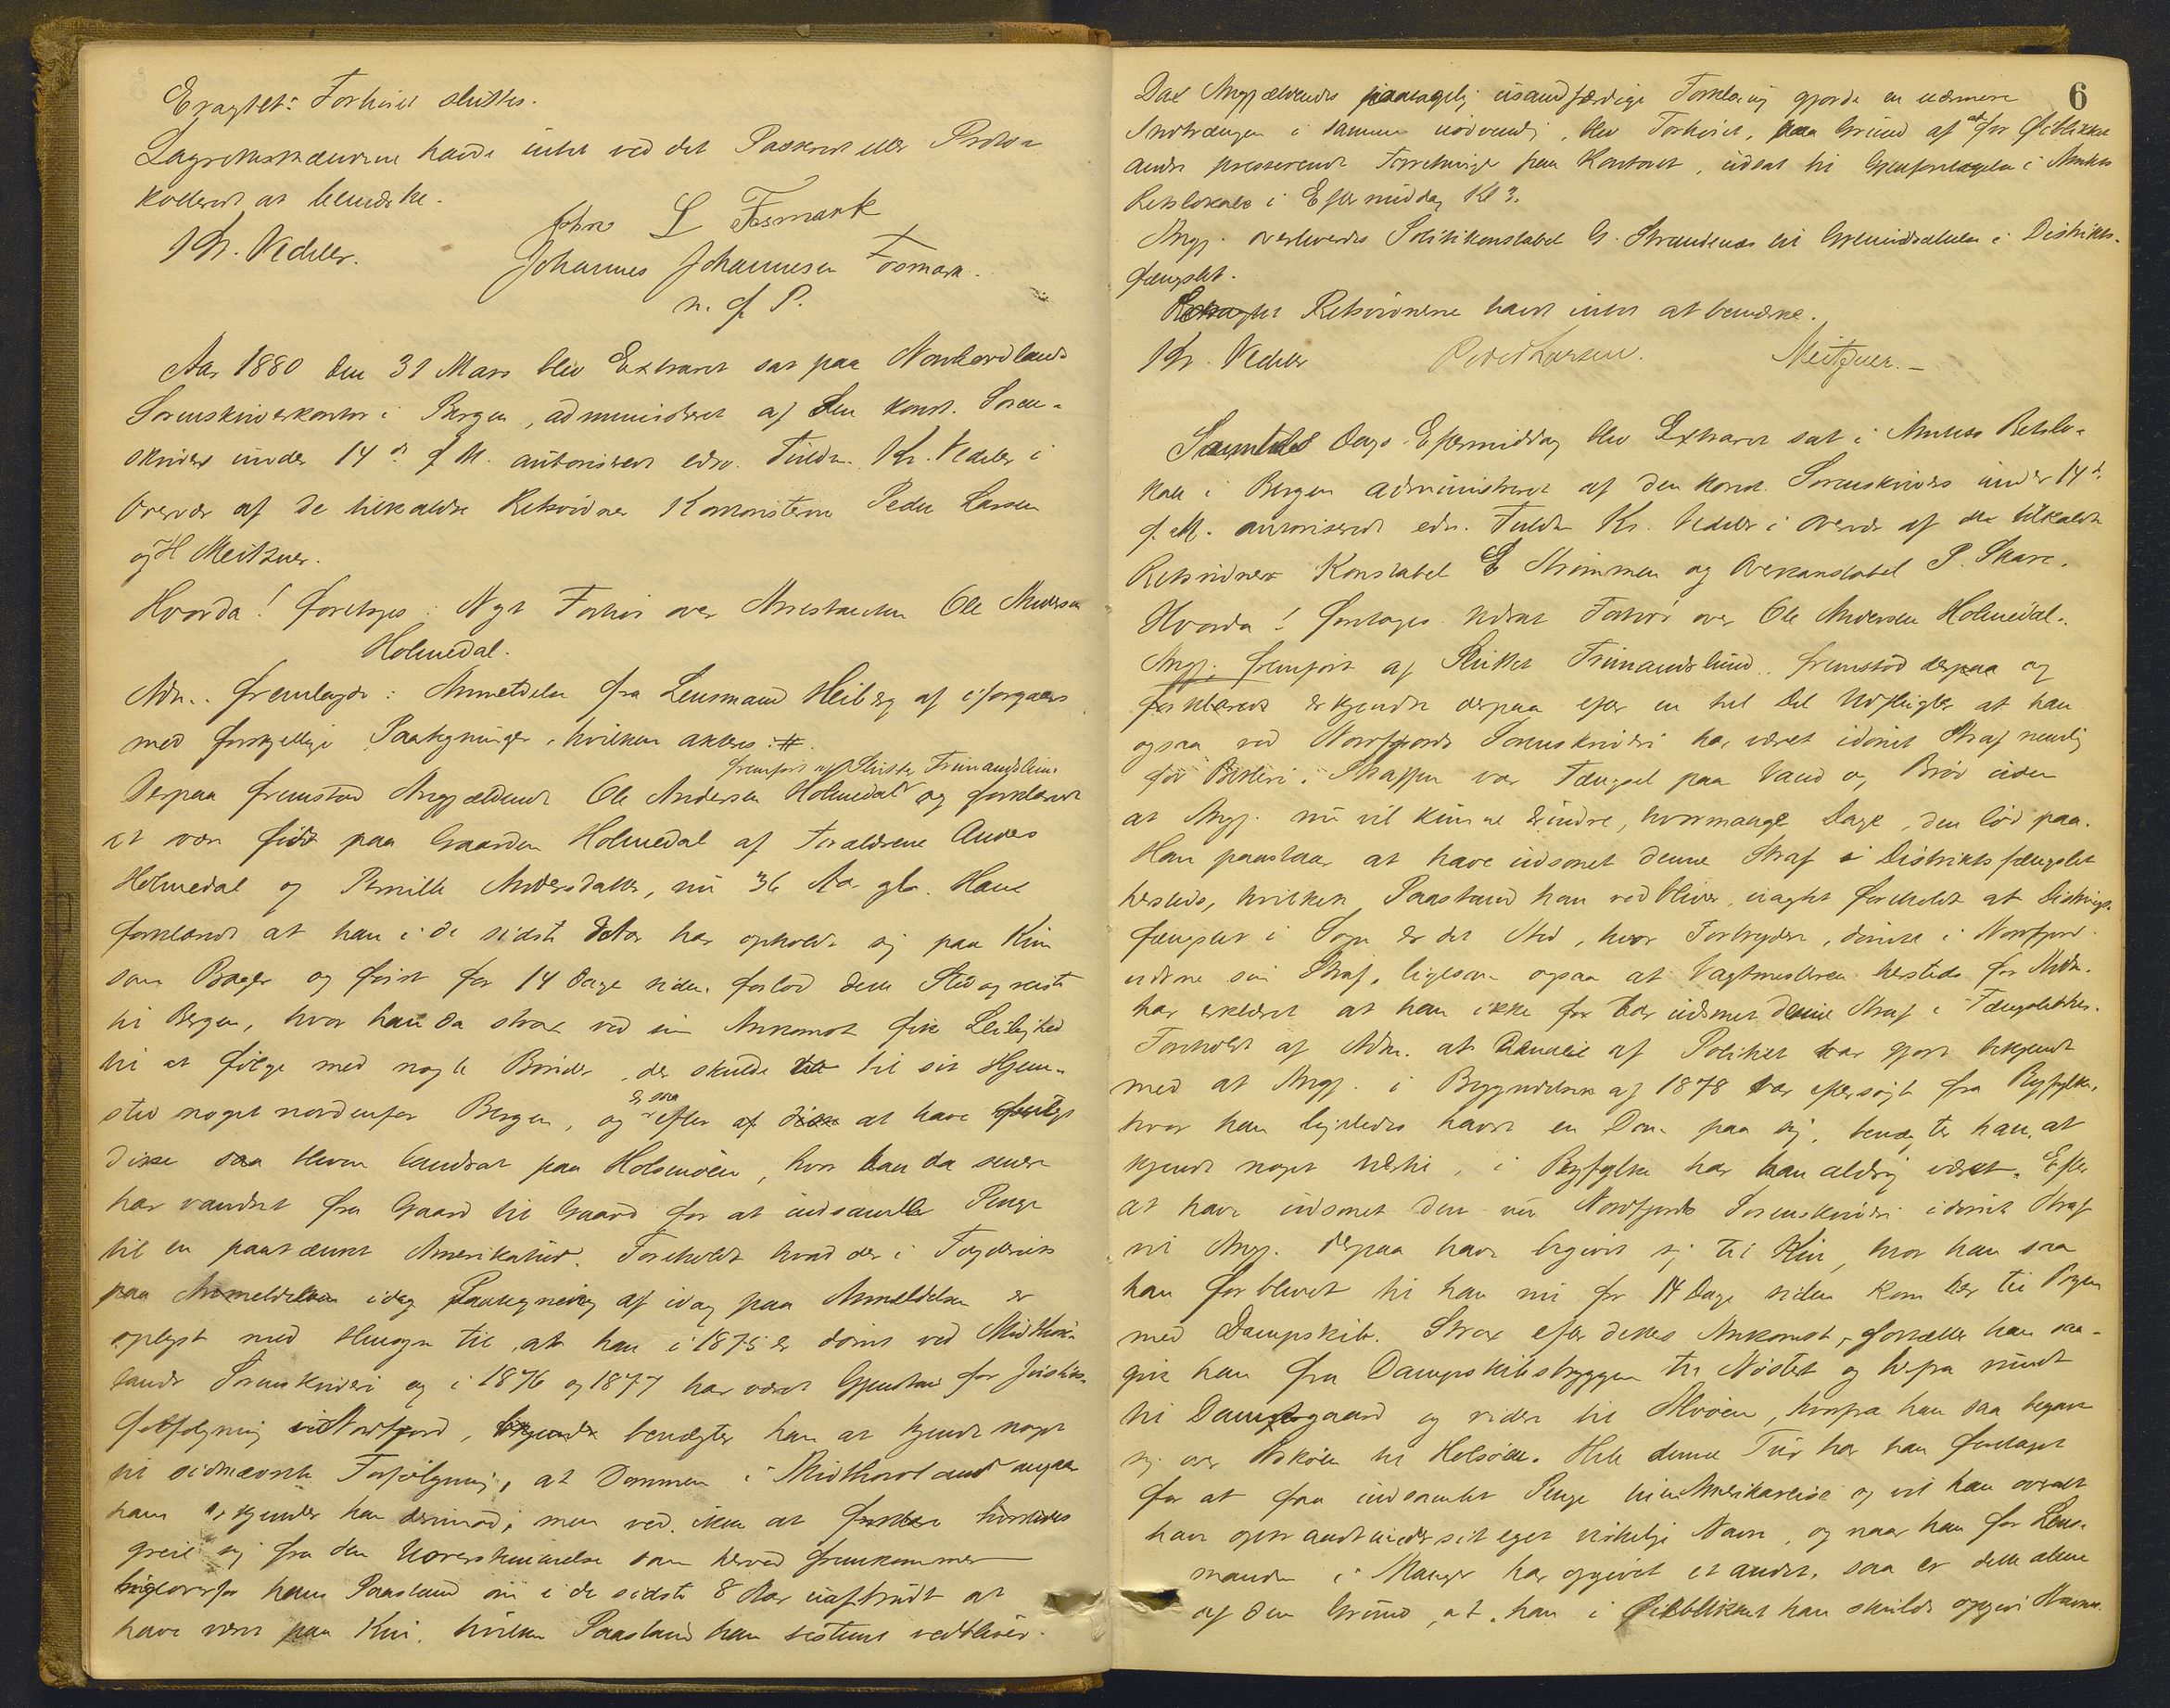 Eragtet: Forhøret sluttes.
Lagrettesmændene havde intet ved det Passerede eller Proto-
kollerede at bemærke.
Kr. Vedeler. John L Fosmark
Johannes Johannesen Fosmark.
m. f. P.
Aar 1880 den 31 Mars blev Extraret sat paa Nordhordlands
Sorenskriverkontor i Bergen, administreret af den konst. Soren-
skriver under 14 d. f M. autoriseret edsv. Fuldm. Kr. Vedeler i
Overvær af de tilkaldte Retsvidner Kontoristerne Peder Larsen
og H Meitzner.
Hvorda! foretoges: Nyt Forhør over Arrestanten Ole Andersen
Holmedal.
Adm. fremlagde: Anmeldelse fra Lensmand Heiberg af iforgaars
med forskjellige Paategninger, hvilken akteres: #.
fremført af Slutter Trimandslund
Derpaa fremstod Angjældende Ole Andersen Holmedal og forklarede
at være født paa Gaarden Holmedal af Forældrene Anders
Holmedal og Pernille Andersdatter, nu 36 Aar gl. Han
forklarede at han i de sidste 8 Aar har opholdt sig paa Kin
som Bager og først for 14 Dage siden forlod dette Sted og reiste
til Bergen, hvor han da strax ved sin Ankomst fik Leilighed
til at følge med nogle Bønder, der skulde til sit Hjem-
sted noget nordenfor Bergen, og er saa efter af disse at have fulgt
disse saa bleven landsat paa Holsenöen, hvor han da senere
har vandret fra Gaard til Gaard for at indsamle Penge
til en paatænkt Amerikatur. Foreholdt hvad der i Fogderiets
paa Anmeldelsen idag Paategning af idag paa Anmeldelsen er
oplyst med Hensyn til, at han i 1875 er dømt ved Midthord-
lands Sorenskriveri og i 1876 og 1877 har været Gjenstand for Justits-
forfølgning i Nordfjord, benægter han at kjende noget
til sidnævnte Forfølgning, at Dommen i Midthordland angaar
ham erkjender han derimod, men ved ikke at hvorledes
greie sig fra den Uoverstemmelse som herved fremkommer
ligeoverfor hans Paastand om i de sidste 8 Aar uafbrudt at
have været paa Kin, hvilken Paastand han bestemt vedbliver.
6
Da Angjældendes paatagelig usandfærdige Forklaring gjorde en nærmere
Indtrængen i samme nødvendig, blev Forhøret, paa Grund af at for Øieblikket
andre presserende Forretninger paa Kontoret, udsat til Gjenforetagelse i Amtets
Retslokale i Eftermiddag Kl 3.
Angj. overleveredes Politikonstabel G. Strandenæs til Gjenindsættelse i Distrikts-
fængslet.
Retsvidnerne havde intet at bemærke.
Kr. Vedeler Peder Larsen. Meitzner.
Samme Dags Eftermiddag blev Extraret sat i Amtets Retslo-
kale i Bergen administreret af den konst. Sorenskriver under 14 d.
f. M. autoriserede edsv. Fuldm Kr. Vedeler i Overvær af de tilkaldte
Retsvidner Konstabel E Strømmen og Overkonstabel P. Skare.
Hvorda! foretoges udsat Forhør over Ole Andersen Holmedal.
Angj. fremført af Slutter Trimandslund. fremstod derpaa og
forklarede erkjendte derpaa efter en hel Del Udflugter at han
ogsaa ved Nordfjords Sorenskriveri har været idømt Straf nemlig
for Betleri. Straffen var Fængsel paa Vand og Brød uden
at Angj. nu vil kunne Erindre, hvormange Dage, den lød paa.
Han paastaar at have udsonet denne Straf i Distriktsfængslet
hersteds, hvilken Paastand han vedbliver, uagtet foreholdt at Distrikts-
fængslet i Sogn er det Sted, hvor Forbrydere, dømte i Nordfjord
udsone sin Straf, ligesom ogsaa at Vagtmesteren hersteds for Adm.
har erklæret at han ikke før har udsonet denne Straf i Fængslet her.
Foreholdt af Adm. at denne af Politiet var gjort bekjendt
med at Angj. i Begyndelsen af 1878 var eftersøgt fra Ryfylke,
hvor han ligeledes havde en Dom paa sig, benægter han, at
kjende noget hertil, i Ryfylke har han aldrig været. Efter
at have udsonet den ved Nordfjords Sorenskriveri idømte Straf
vil Angj. derpaa have begivet sig til Kin, hvor han saa
han forblevet til han nu for 14 Dage siden kom her til Bergen
med Dampskib. Strax efter dettes Ankomst, fortæller han saa,
gik han fra Dampskibsbryggen til Nöstet og herfra rundt
til Damsgaard og videre til Alvöen, hvorfra han saa begav
sig over Askøen til Holsöen. Hele denne Tur har han foretaget
for at faa indsamlet Penge til en Amerikareise og vil han overalt
have opgivet sit eget virkelige Navn, og naar han for Lens-
manden i Manger har opgivet et andet, saa er dette alene
af den Grund, at han i Øieblikket han skulde opgive Navn